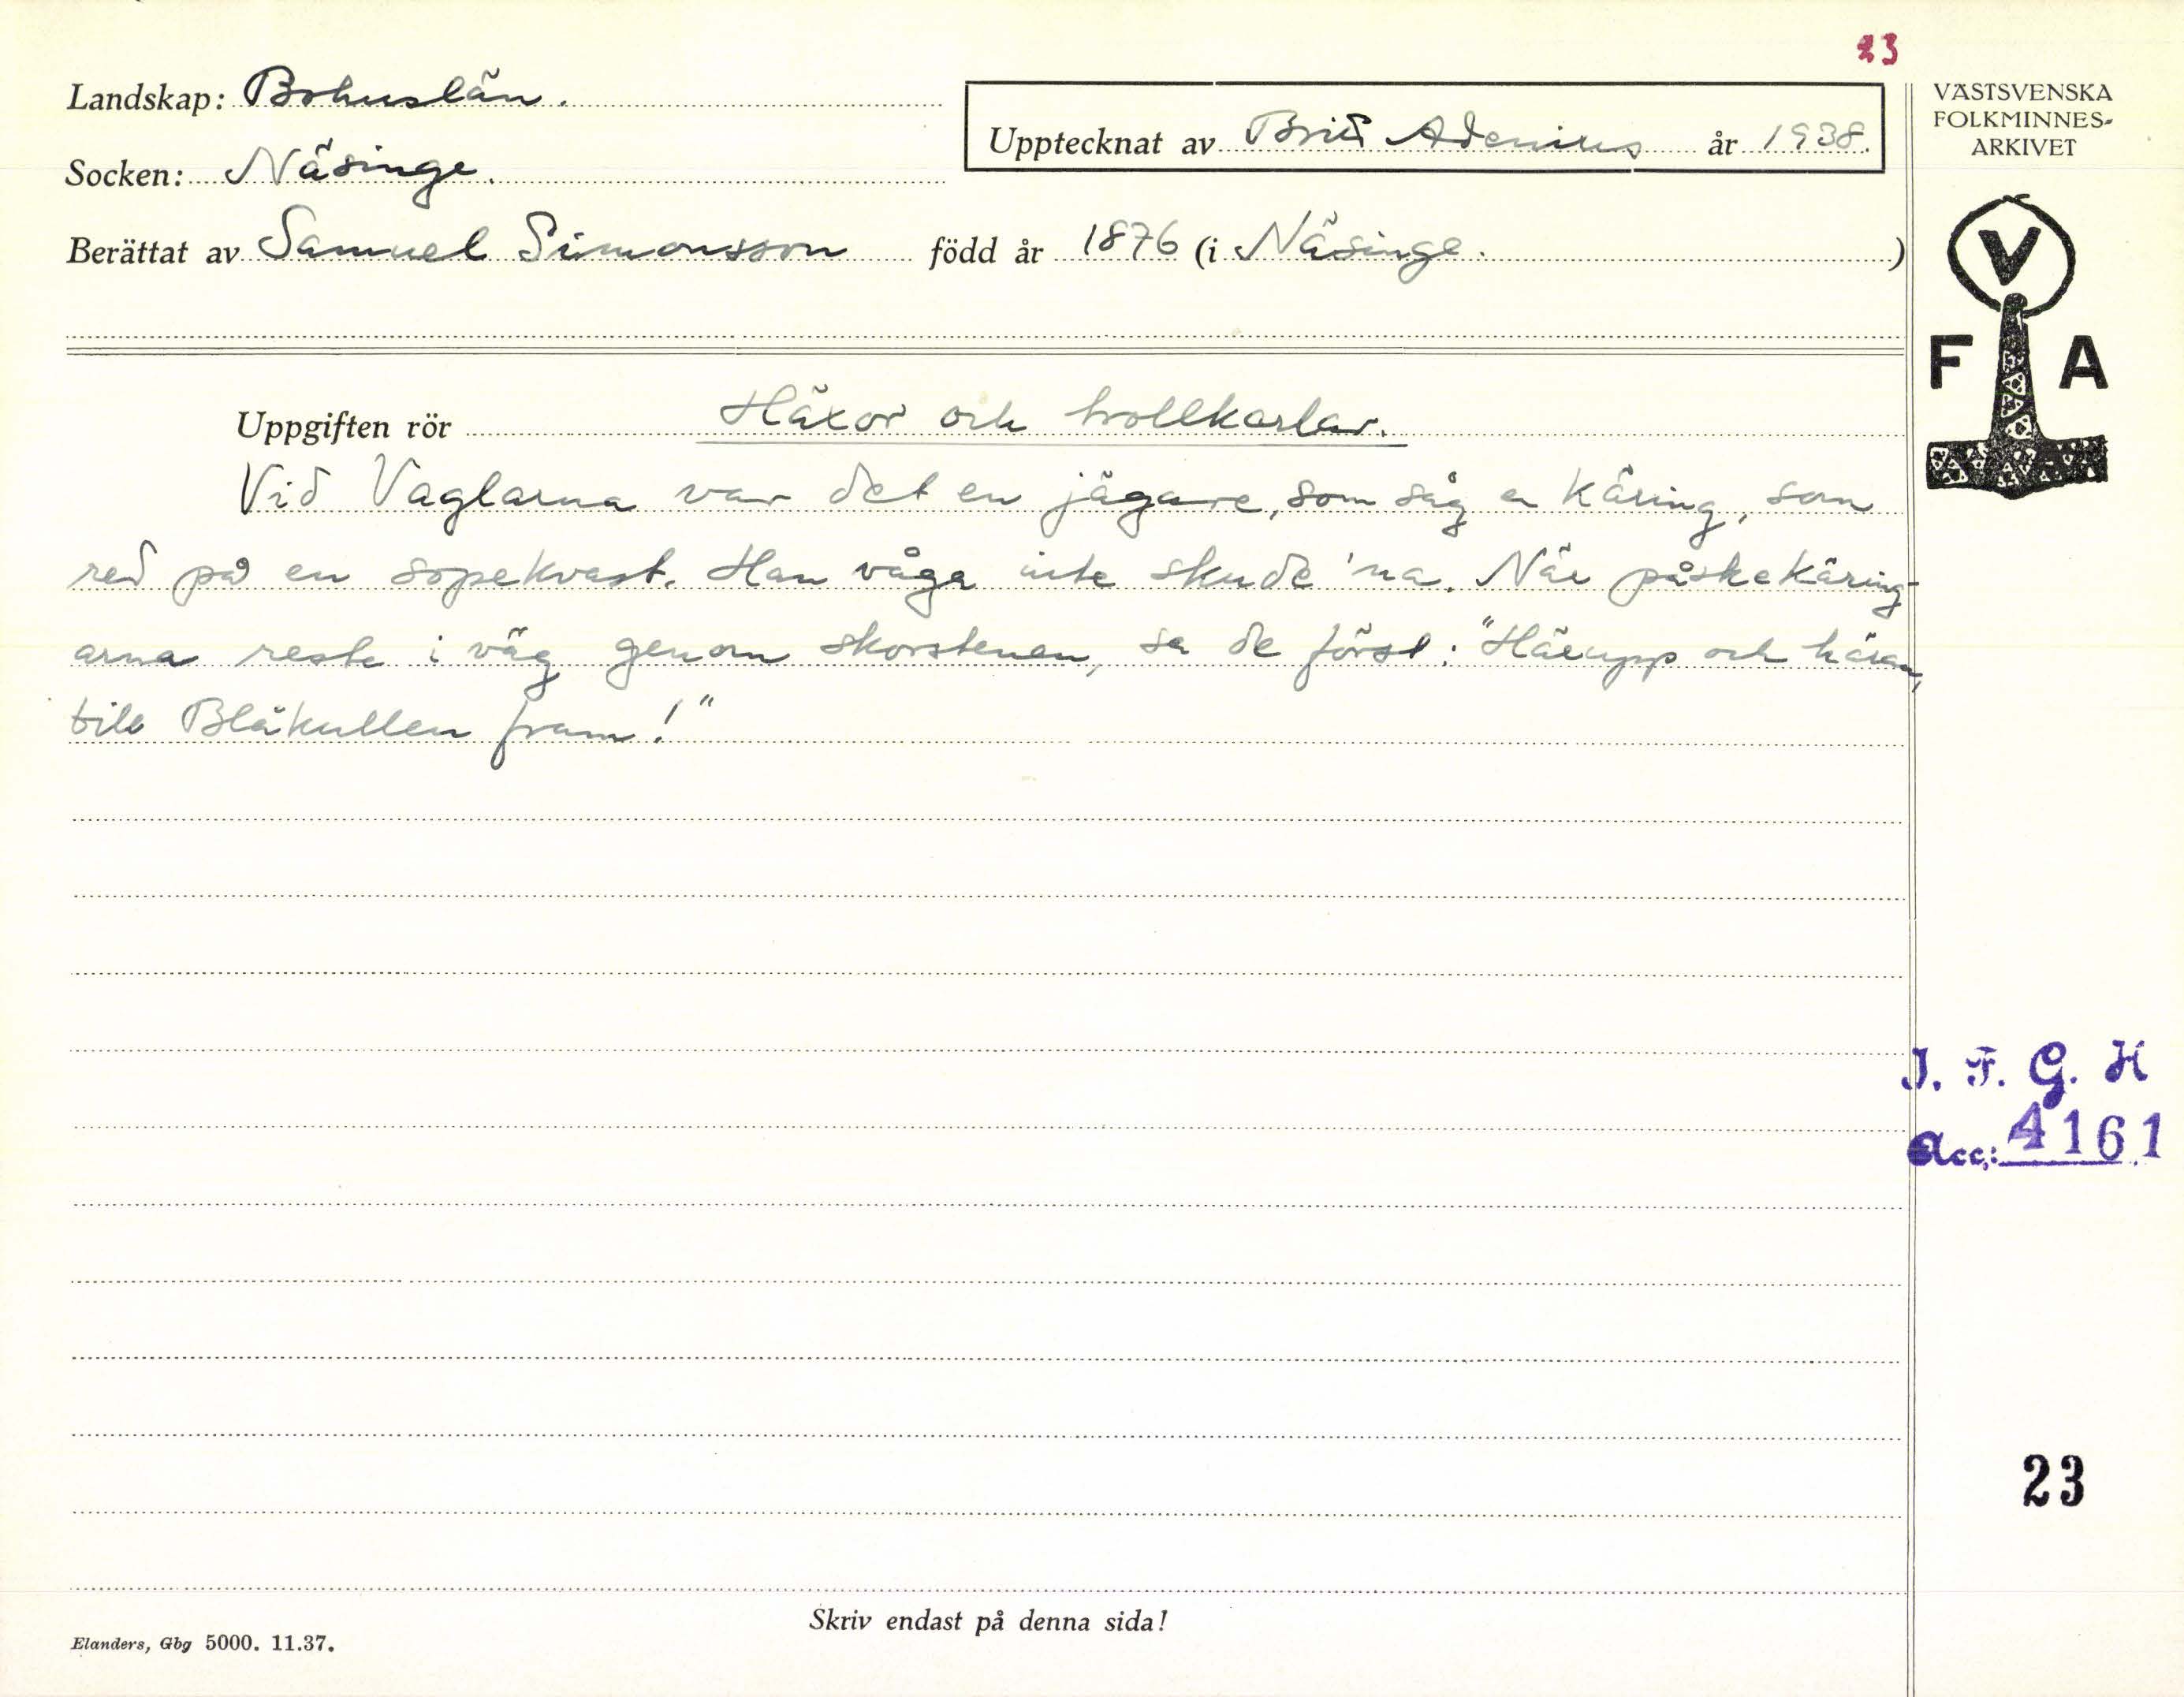 23
Landskap: Bohuslän.
Upptecknat av Brita Adenius år 1938.
Socken: Näsinge.
Berättat av Samuel Simonsson född år 1876 (i Näsinge.)
VÄSTSVENSKA
FOLKMINNES-
ARKIVET
V
F A
Uppgiften rör Häxor och trollkarlar.
Vid Vaglarna var det en jägare, som såg en käring, som
red på en sopekvast. Han våga inte skude 'na. När påskekäring-
arna reste i väg genom skorstenen, sa de först: "Härupp och häran,
till Blåkullen fram!"
I. F. G. H
Acc: 4161
23
Skriv endast på denna sida!
Elanders, Gbg 5000. 11.37.